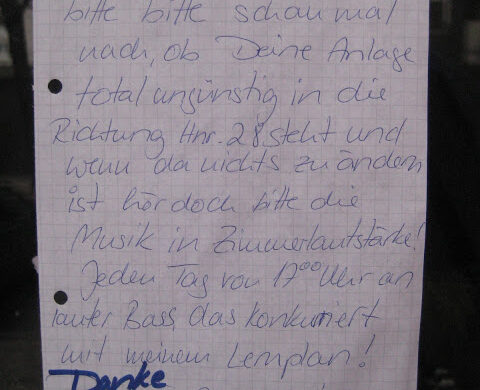 bitte bitte schau mal
nach, ob Deine Anlage
total ungünstig in die
Richtung Hnr. 28 steht und
wenn da nichts zu ändern
ist hör doch bitte die
Musik in Zimmerlautstärke!
Jeden Tag von 17⁰⁰ Uhr an
lauter Bass, das konkurriert
mit meinem Lernplan!
Danke